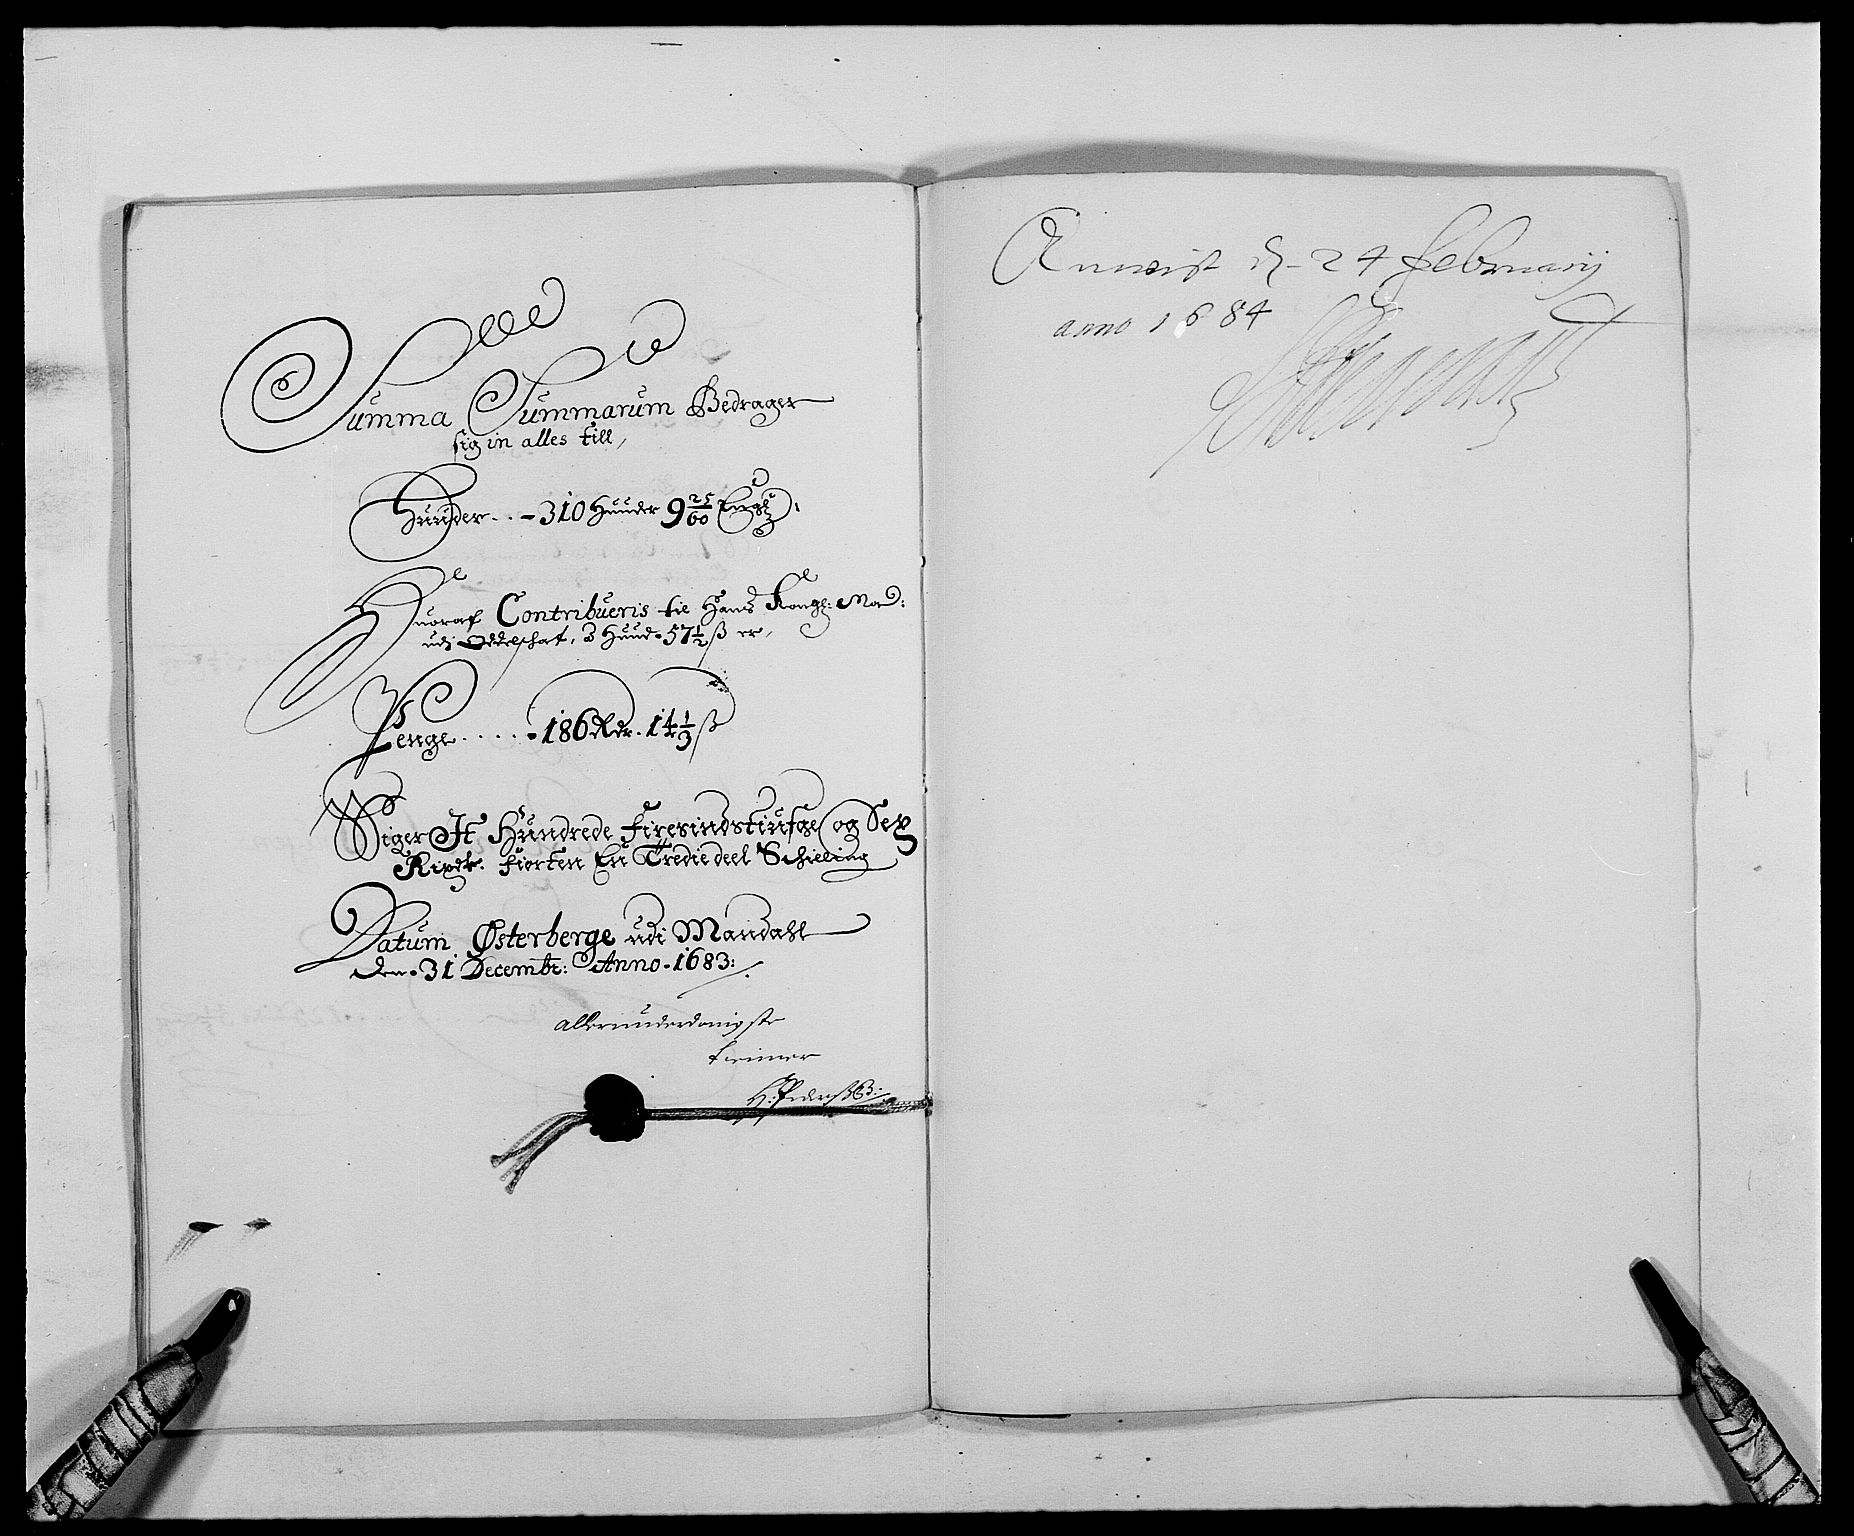 Summa Summarum Bedrager
sig in alles till,
Huuder... - 310 Huuder 9 25/60 Eng:
Huoraf Contribueris til Hans Kongl: Maÿ:
udj Oddelschat, 3 Huud. 57½ ß er,
Penge..... - 186 Rdr. 14 1/3 ß
Siger It Hundrede firesindstiufge og Sex
Rixdr. fiorten En Tredie deel Schieling
Datum Østerberge udi Mandahl
den. 31 Decembr: Anno. 1683:
allerunderdanigste
tienner
H: Pederß
Anwist d. 24 february
anno 1684